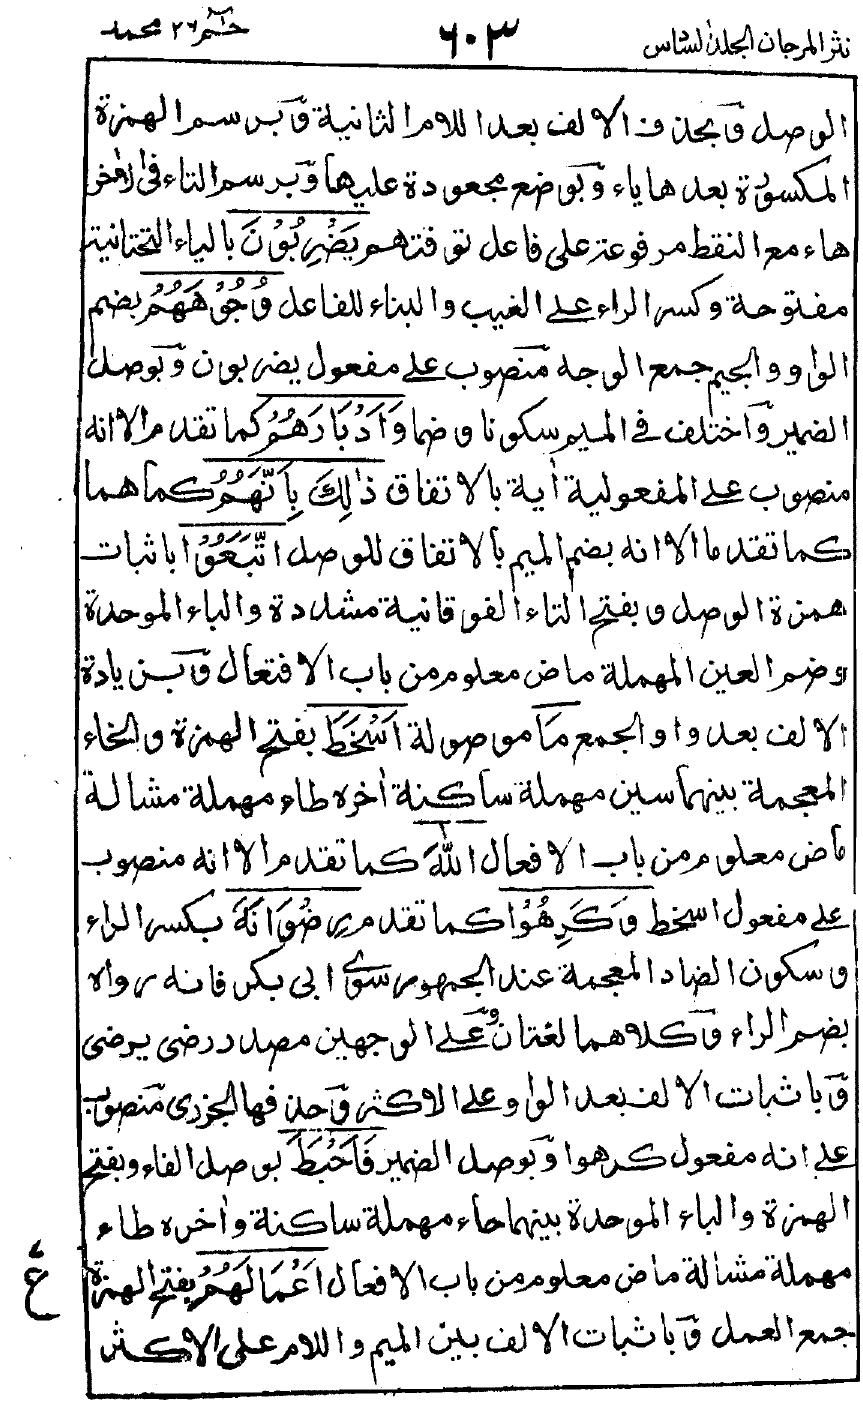 نثر المرجان الجلد السادس ٦٠٣ حٰم ٢٦ محمد
الوصل وَبحذف الالف بعد اللام الثانية وَبرسم الهمزة
المكسورة بعدها ياء وَبوضع مجعودة عليها وَبرسم التاء فى الاٰخر
هاء مع النقط مرفوعة على فاعل توفتهم يَضْرِبُوْنَ بالياء التحتانية
مفتوحة وكسر الراء على الغيب والبناء للفاعل وُجُوْهَهُمْ بضم
الواو والجيم جمع الوجه مَنصوب على مفعول يضربون وَبوصل
الضمير وَاختلف فى الميم سكونا وضما وَاَدْبَارَهُمْ كما تقدم الا انه
منصوب على المفعولية اٰية بالاتفاق ذٰلِكَ بِاَنَّهُمُ كما هما
كما تقدما الا انه بضم الميم بالاتفاق للوصل اتَّبَعُوْا باثبات
همزة الوصل وبفتح التاء الفوقانية مشددة والباء الموحدة
وضم العين المهملة ماض معلوم من باب الافتعال وَبزيادة
الالف بعد واو الجمع مَا موصولة اَسْخَطَ بفتح الهمزة والخاء
المعجمة بينهما سين مهملة ساكنة اٰخره طاء مهملة مشالة
ماض معلوم من باب الافعال اللّٰهَ كما تقدم الا انه منصوب
على مفعول اسخط وَكَرِهُوْا كما تقدم رِضْوَانَهٗ بكسر الراء
وسكون الضاد المعجمة عند الجمهور سوى ابى بكر فانه رواه
بضم الراء وَكلاهما لغتان وَعلى الوجهين مصدر رضى يرضى
وَباثبات الالف بعد الواو على الاكثر وَحذفها الجزرى مَنصوب
على انه مفعول كرهوا وَبوصل الضمير فَاَحْبَطَ بوصل الفاء وبفتح
الهمزة والباء الموحدة بينهما حاء مهملة ساكنة واٰخره طاء
مهملة مشالة ماض معلوم من باب الافعال اَعْمَالَهُمْ بفتح الهمزة
جمع العمل وَباثبات الالف بين الميم واللام على الاكثر
ع